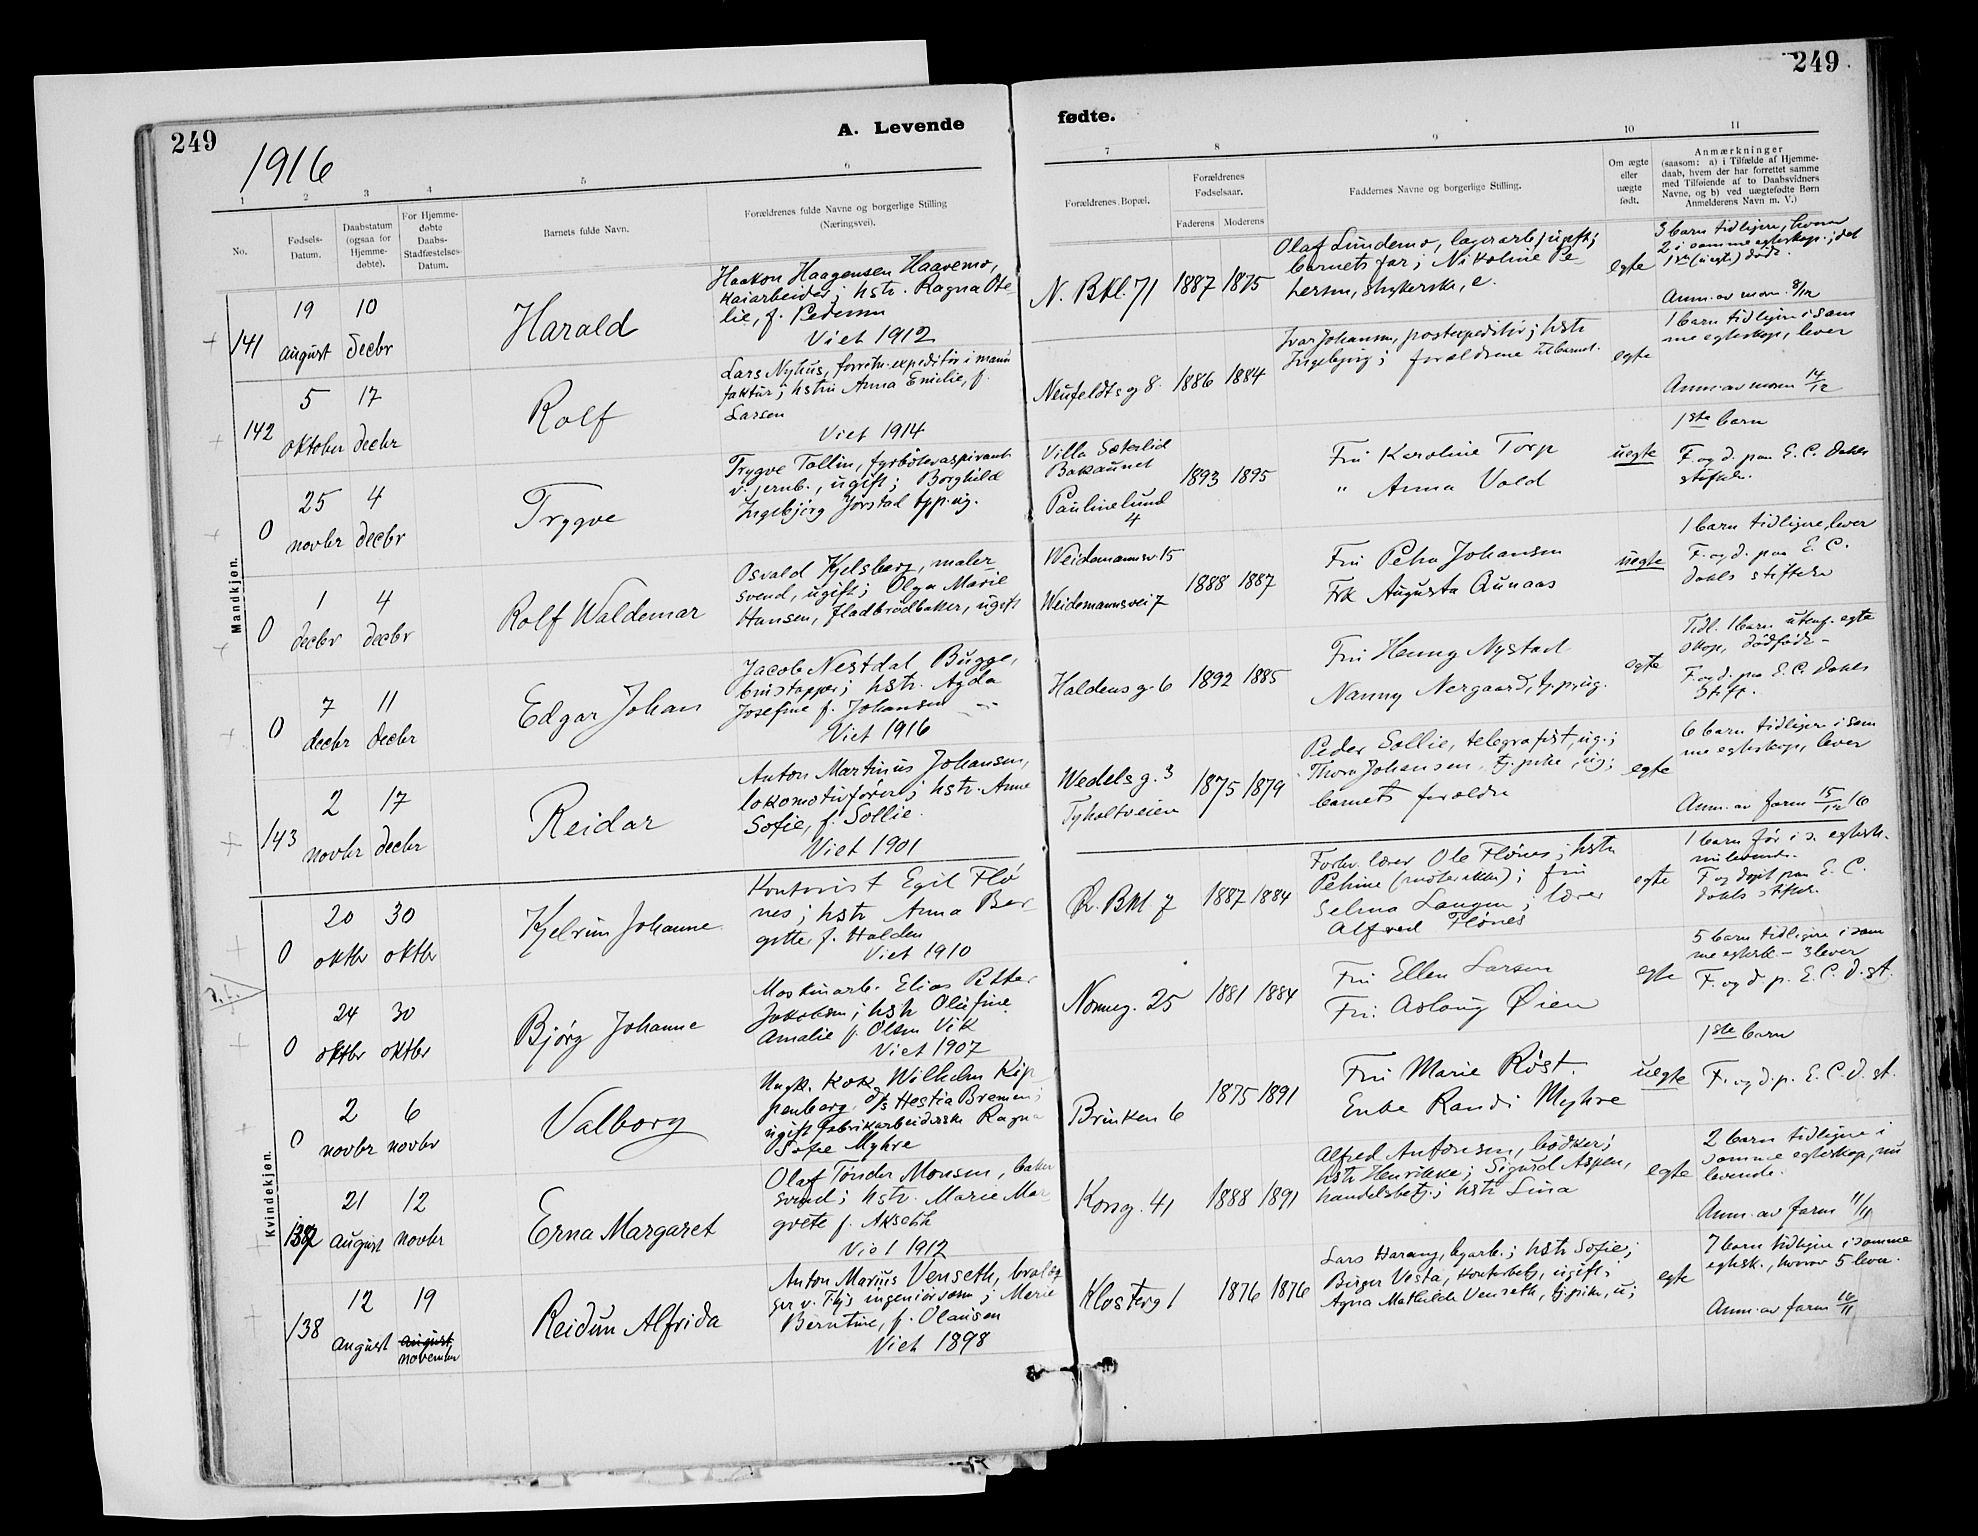 249
249
1916
A. Levende fødte.
1
2
3
4
5
6
7
8
9
10
11
No.
Fødsels-
Datum.
Daabstatum
(ogsaa for
Hjemme-
døbte).
For Hjemme-
døbte
Daabs-
Stadfæstelses-
Datum.
Barnets fulde Navn.
Forældrenes fulde Navne og borgerlige Stilling
(Næringsvei).
Forældrenes Bopæl.
Forældrenes
Fødselsaar.
Faderens
Moderens
Faddernes Navne og borgerlige Stilling.
Om ægte
eller
uægte
født.
Anmærkninger
(saasom: a) i Tilfælde af Hjemme-
daab, hvem der har forrettet samme
med Tilføiende af to Daabsvidners
Navne, og b) ved uægtefødte Børn
Anmelderens Navn m. V.)
Mandkjøn.
141
19
august
10
decbr
Harald
Haakon Haagensen Haavemo,
kaiarbeider; hstr. Ragna Ote-
lie, f. Pedersen
Viet 1912
N. Bkl. 71
1887 1875
Olaf Lundemo, lagerarb, ugift;
barnets far; Nikoline Pe
tersen, strykerske, e.
egte
3 barn tidligere, hvorav
2 i samme egteskap; det
1ste (uegte) død.
Anm. av mor. 8/12
142
5
oktober
17
decbr
Rolf
Lars Nyhus, forretn. expeditør i manu
faktur; hstru Anna Emilie, f.
Larsen
Viet 1914
Neufeldts g 8
1886 1884
Ivar Johansen, postexpeditør; hstr
Ingebjørg; forældrene til barnet.
egte
1 barn tidligere i sam
me egteskap, lever
Anm. av moren 14/12
0
25
novbr
4
decbr
Trygve
Trygve Tollin, fyrbøteraspirant
v. jernb., ugift; Borghild
Ingebjørg Jørstad tjp. ug.
Villa Sæterlid
Bakaunet
Paulinelund
4
1893 1895
Fru Karoline Torp
" Anna Vold
uegte
1ste barn
F. og d. paa E. C. Dahls
stiftelse.
0
1
decbr
4
decbr
Rolf Waldemar
Osvald Kjelsberg, maler
svend, ugift; Olga Marie
Hansen, fladbrødbaker, ugift
Weidemannsv. 15
Weidemannsvei 7
1888 1887
Fru Petra Johansen
Frk Augusta Aunaas
uegte
1 barn tidligere, lever
F. og d. paa E. C.
Dahls stiftelse
0
7
decbr
11
decbr
Edgar Johan
Jacob Nestdal Bugge,
hstr. Agda
Josefine f. Johansen
Viet 1916
Haldens g. 6
1892 1885
Fru Henny Nystad
Nanny Nergaard, tjp. ug.
egte
Tidl. 1 barn utenf. egte
skap, dødfødt -
F. og d. paa E. C. Dahls
Stift.
143
2
novbr
17
decbr
Reidar
Anton Martinus Johansen,
lokomotivfører; hstr. Anne
Sofie, f. Sollie.
Viet 1901
Wedels g. 3
Tyholtveien
1875 1879
Peder Sollie, telegrafist, ug.;
Thora Johansen, tj. pike, ug;
barnets forældre
egte
6 barn tidligere i sam
me egteskap, lever
Anm. av faren 15/12 16
Kvindekjøn.
0
20
oktbr
30
oktbr
Kjelrun Johanne
Kontorist Egil Flø
nes; hstr Anna Ber-
gitte f. Halden
Viet 1910
Ø. Bkl 7
1887 1884
Forhv. lærer Ole Flønes; hstr
Petrine (møter ikke); fru
Selma Langen; lærer
Alfred Flønes
egte
1 barn før i s. egtesk.
F og døpt paa E. C.
Dahls stiftelse.
0
24
oktbr
30
oktbr
Bjørg Johanne
Maskinarb. Elias Petter
Jakobsen; hstr Olufine
Amalie f. Olsen Vik
Viet 1907
Nonneg. 25
1881 1884
Fru Ellen Larsen
Fru Aslaug Øien
egte
5 barn tidligere i sam
me egtesk - 3 lever
F. og d. p. E. C. D. st.
0
2
novbr
6
novbr
Valborg
Ungk. kok Wilhelm Kip
penberg, d/s Hestia Bremen;
ugift fabrikarbeiderske Ragna
Sofie Myhre
Brinken 6
1875 1891
Fru Marie Røst.
Enke Randi Myhre
uegte
1ste barn
F. og d. p. E. C. D. st.
137
21
august
12
novbr
Erna Margaret
Olaf Tønder Monsen, baker
svend; hstr. Marie Mar
grete f. Aksethh
Viet 1912
Kong. 41
1888 1891
Alfred Antonsen, bødker;
hstr Henrikke; Sigurd Aspen,
handelsbetj.; hstr Lina
egte
2 barn tidligere i
samme egteskap, nu
levende.
Anm. av faren 11/11
138
12
august
19
august
november
Reidun Alfrida
Anton Marius Venseth, brolæg
ger v. Thjs ingeniørvæsen; Marie
Berntine, f. Olausen
Viet 1898
Klosterg 1
1876 1876
Lars Harang, byarb.; hstr Sofie;
Birger Vesta, kontorbetj., ugift;
Agna Mathilde Venseth, tj.pike, u;
egte
7 barn tidligere i samme
egtesk., hvorav 5 lever.
Anm. av faren 16/11